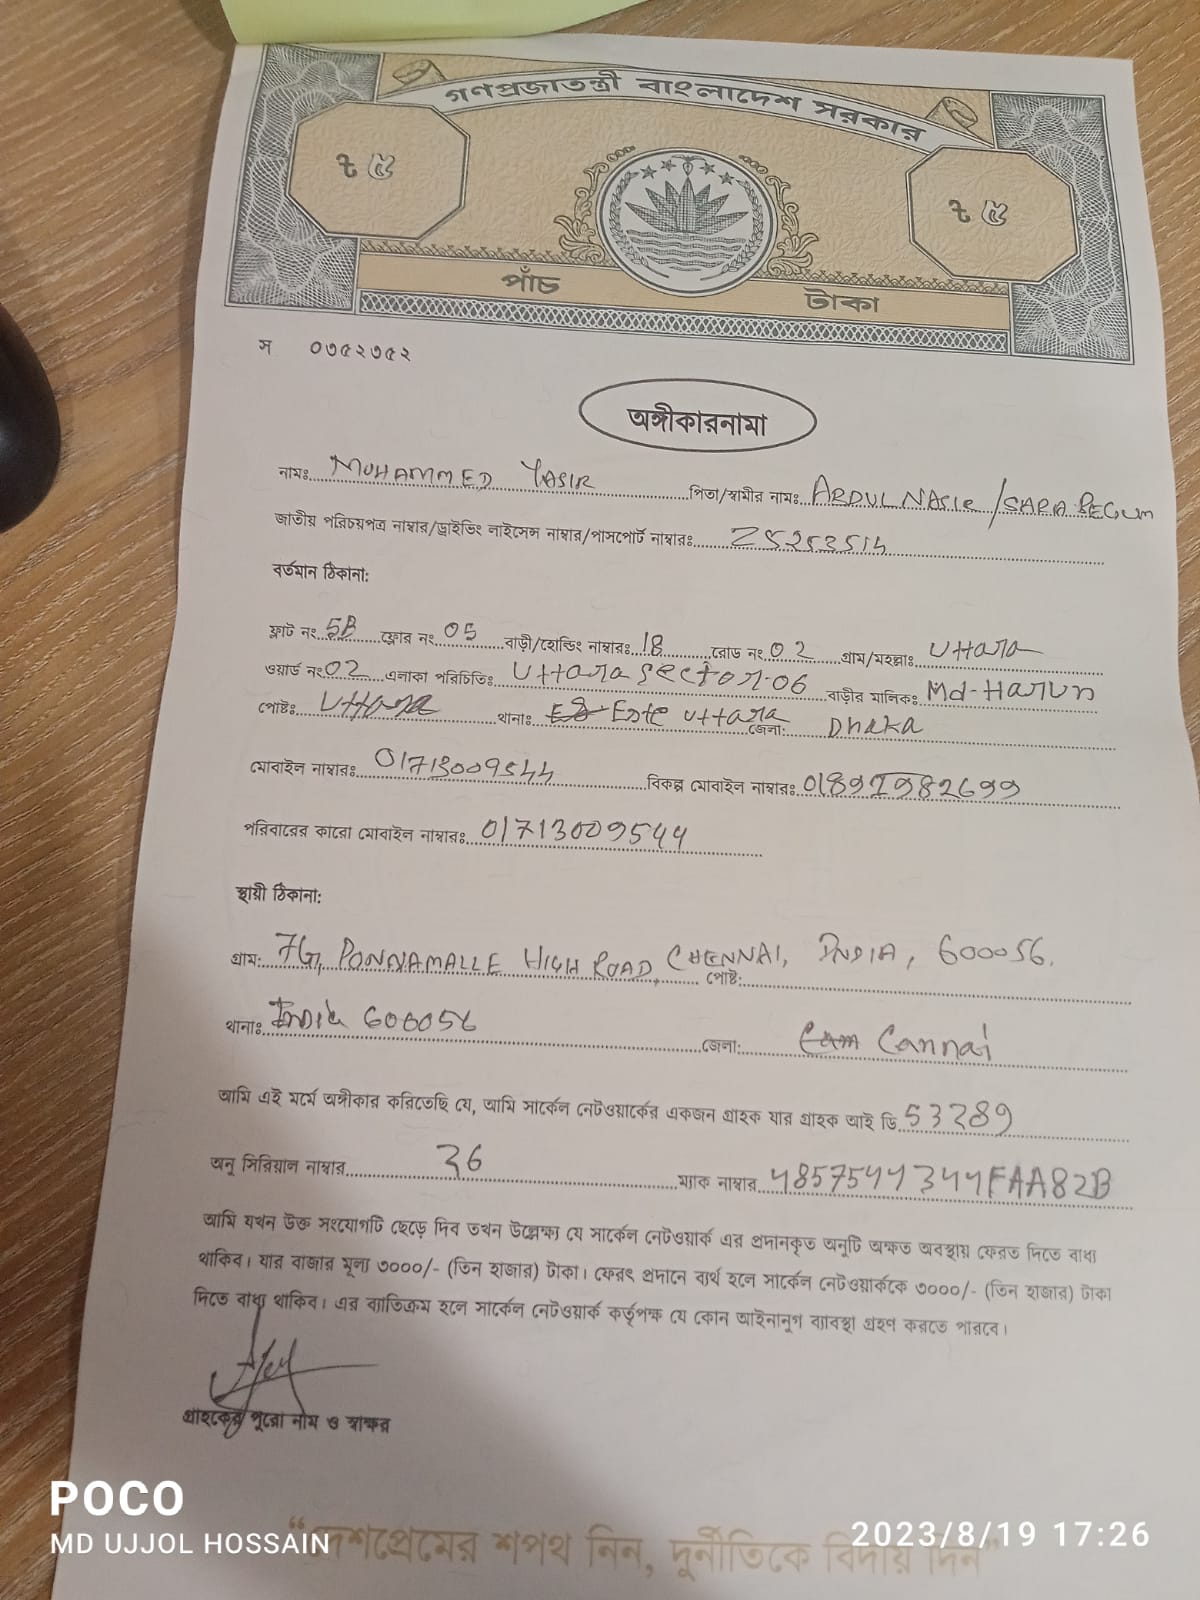 গণপ্রজাতন্ত্রী বাংলাদেশ সরকার
৳ ৫
৳ ৫
পাঁচ টাকা
স ০৩৫২৩৫২
অঙ্গীকারনামা
নামঃ MOHAMMED YASIR পিতা/স্বামীর নামঃ ABDUL NASIR / SARA BEGUM
জাতীয় পরিচয়পত্র নাম্বার/ড্রাইভিং লাইসেন্স নাম্বার/পাসপোর্ট নাম্বারঃ
বর্তমান ঠিকানা:
ফ্লাট নং 5B ফ্লোর নং 05 বাড়ী/হোল্ডিং নাম্বারঃ 18 রোড নং 02 গ্রাম/মহল্লাঃ Uttara
ওয়ার্ড নং 02 এলাকা পরিচিতিঃ Uttara Sector-06 বাড়ীর মালিকঃ Md-Harun
পোষ্টঃ Uttara থানাঃ Este Uttara জেলা: Dhaka
মোবাইল নাম্বারঃ 01713009544 বিকল্প মোবাইল নাম্বারঃ
পরিবারের কারো মোবাইল নাম্বারঃ 01713009544
স্থায়ী ঠিকানা:
গ্রাম: 7G, PONNAMALLE HIGH ROAD, CHENNAI, INDIA, 600056. পোষ্ট:
থানাঃ India 600056 জেলা: Cannai
আমি এই মর্মে অঙ্গীকার করিতেছি যে, আমি সার্কেল নেটওয়ার্কের একজন গ্রাহক যার গ্রাহক আই ডি 53289
অনু সিরিয়াল নাম্বার 36 ম্যাক নাম্বার 48575444344FAA82B
আমি যখন উক্ত সংযোগটি ছেড়ে দিব তখন উল্লেক্ষ্য যে সার্কেল নেটওয়ার্ক এর প্রদানকৃত অনুটি অক্ষত অবস্থায় ফেরত দিতে বাধ্য
থাকিব। যার বাজার মূল্য ৩০০০/- (তিন হাজার) টাকা। ফেরৎ প্রদানে ব্যর্থ হলে সার্কেল নেটওয়ার্ককে ৩০০০/- (তিন হাজার) টাকা
দিতে বাধ্য থাকিব। এর ব্যতিক্রম হলে সার্কেল নেটওয়ার্ক কর্তৃপক্ষ যে কোন আইনানুগ ব্যাবস্থা গ্রহণ করতে পারবে।
গ্রাহকের পুরো নাম ও স্বাক্ষর
“দেশপ্রেমের শপথ নিন, দুর্নীতিকে বিদায় দিন”
POCO
MD UJJOL HOSSAIN
2023/8/19 17:26